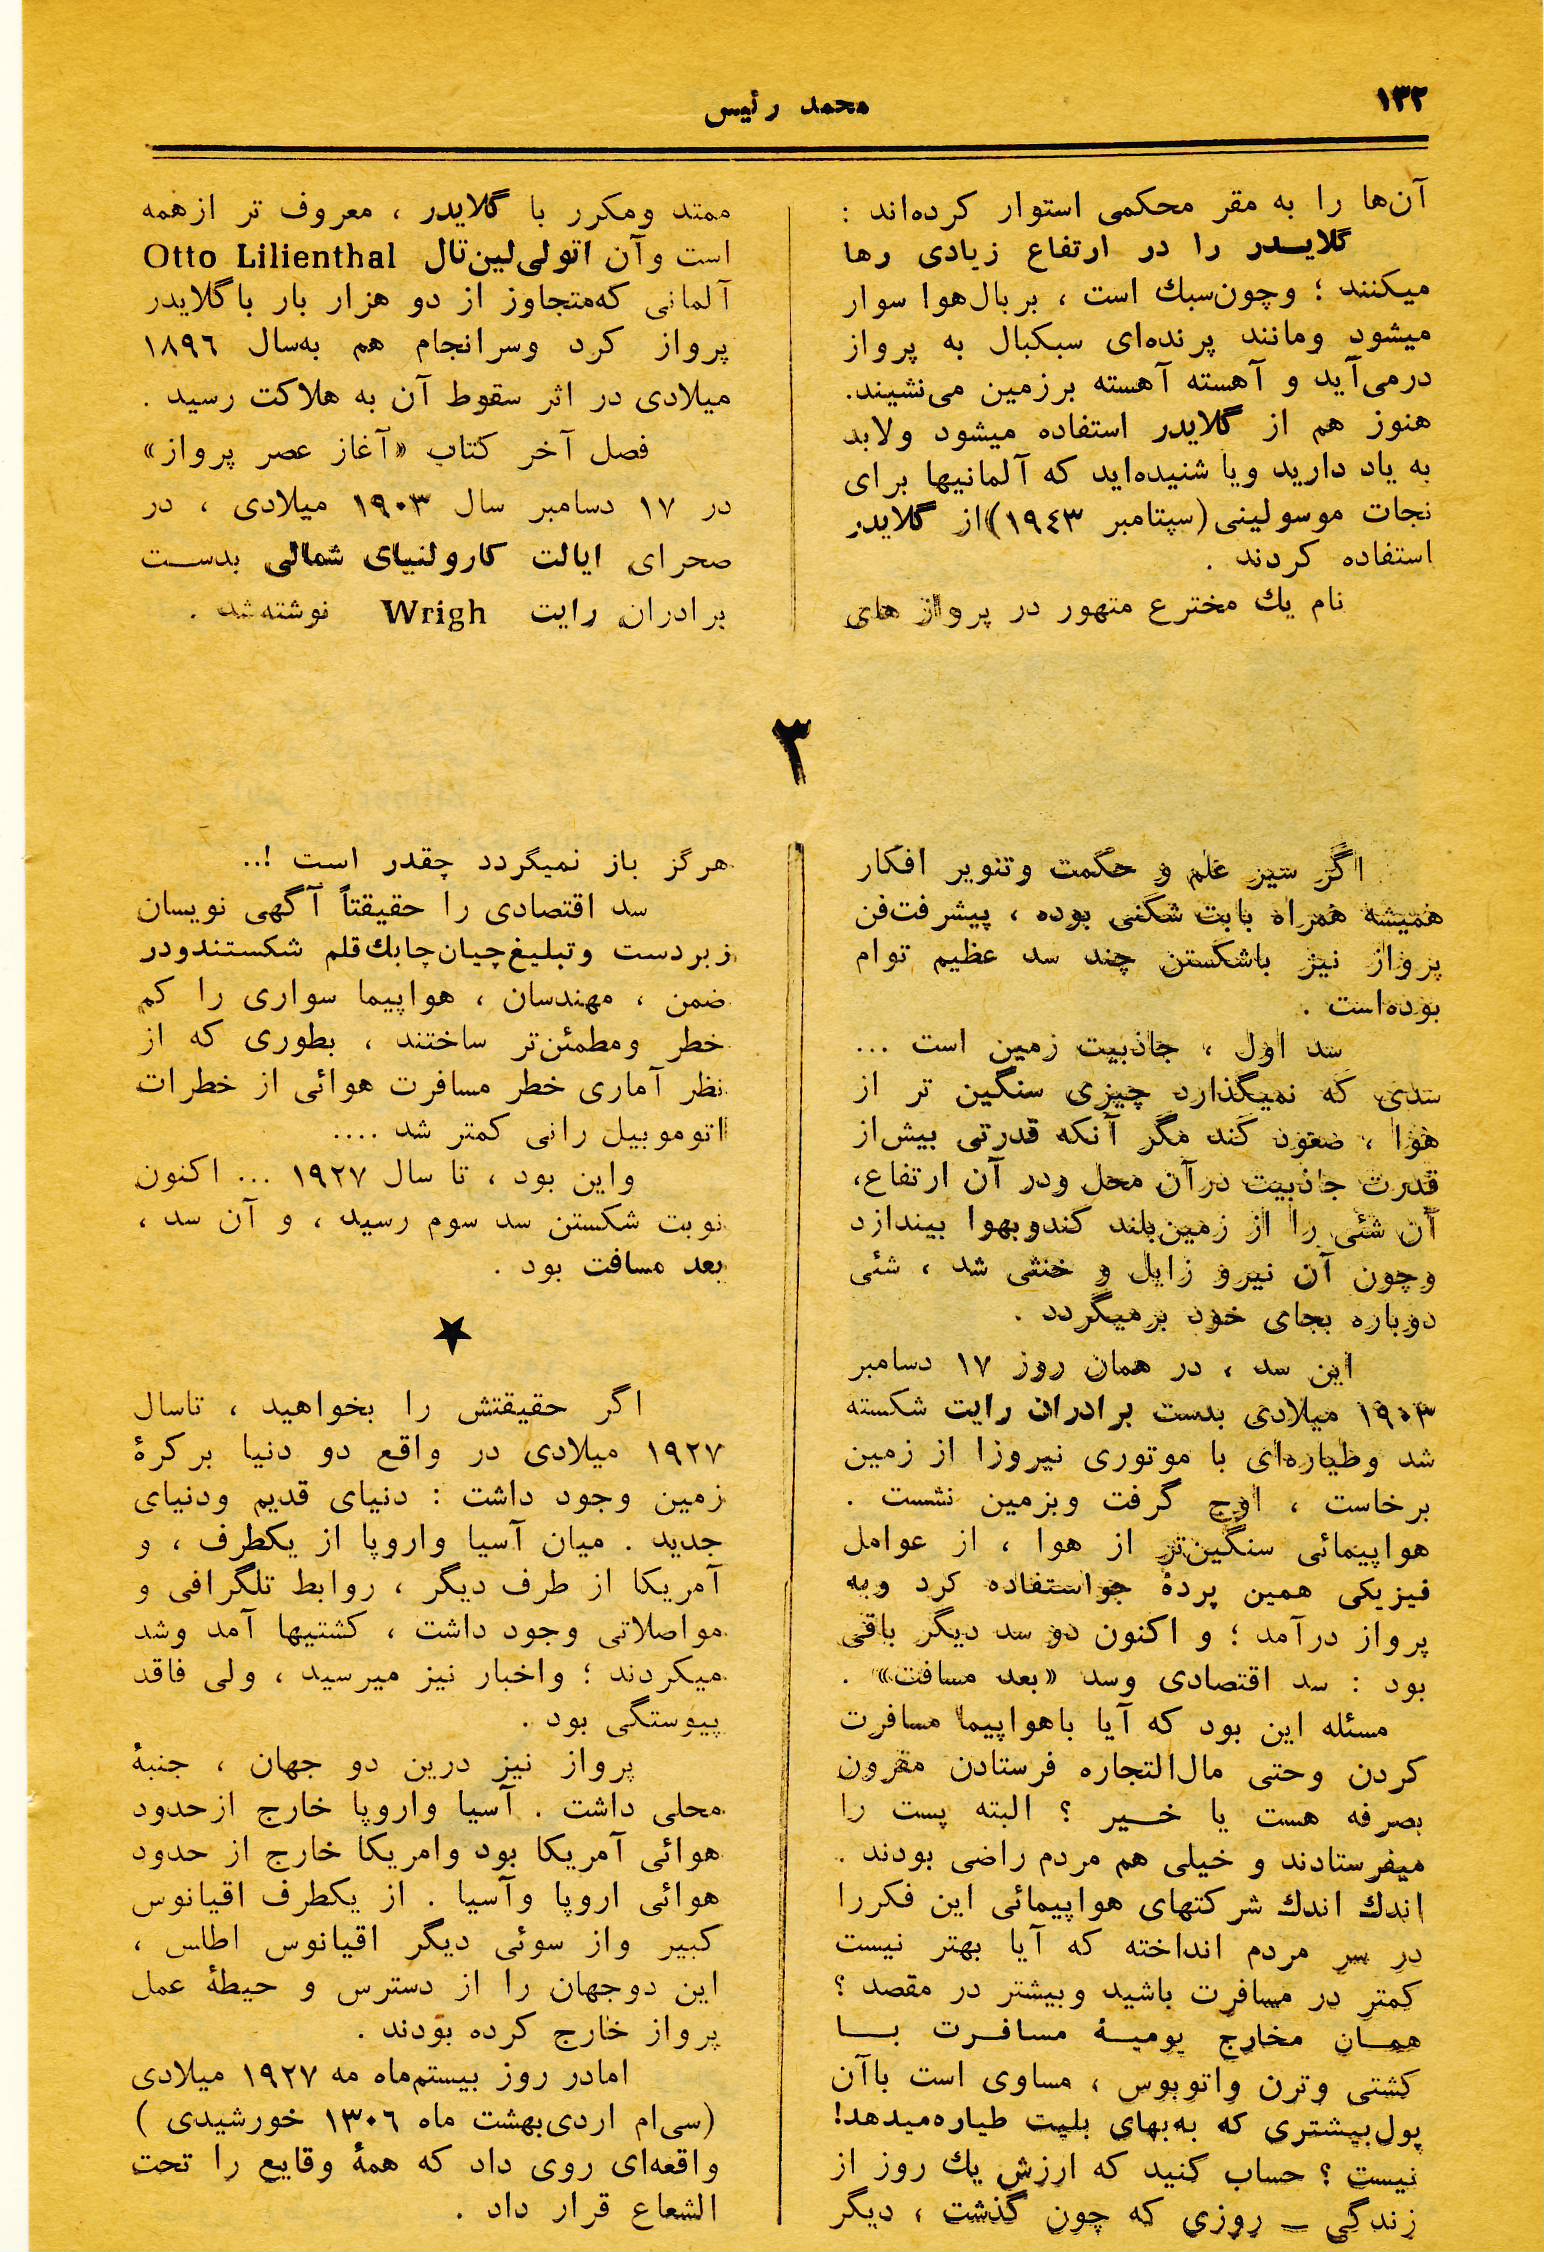 ۱۳۲
محمد رئیس
آن‌ها را به مقر محکمی استوار کرده‌اند :
گلایـدر را در ارتفاع زیادی رها
میکنند ؛ وچون‌سبك است ، بربال‌هوا سوار
میشود ومانند پرنده‌ای سبکبال به پرواز
درمی‌آید و آهسته آهسته برزمین می‌نشیند.
هنوز هم از گلایدر استفاده میشود ولابد
به یاد دارید ویا شنیده‌اید که آلمانیها برای
نجات موسولینی(سپتامبر ۱۹٤۳)از گلایدر
استفاده کردند .
نام یك مخترع متهور در پرواز های
ممتد ومکرر با گلایدر ، معروف تر ازهمه
است وآن اتولی‌لین‌تال Otto Lilienthal
آلمانی که‌متجاوز از دو هزار بار باگلایدر
پرواز کرد وسرانجام هم به‌سال ۱۸۹٦
میلادی در اثر سقوط آن به هلاکت رسید .
فصل آخر کتاب «آغاز عصر پرواز»
در ۱۷ دسامبر سال ۱۹۰۳ میلادی ، در
صحرای ایالت کارولنیای شمالی بدست
برادران رایت Wrigh نوشته‌شد .
۳
اگر سیر علم و حکمت وتنویر افکار
همیشه همراه بابت شکنی بوده ، پیشرفت‌فن
پرواز نیز باشکستن چند سد عظیم توام
بوده‌است .
سد اول ، جاذبیت زمین است ...
سدی که نمیگذارد چیزی سنگین تر از
هوا ، صعود کند مگر آنکه قدرتی بیش‌از
قدرت جاذبیت درآن محل ودر آن ارتفاع،
آن شئی را از زمین‌بلند کندوبهوا بیندازد
وچون آن نیرو زایل و خنثی شد ، شئی
دوباره بجای خود برمیگردد .
این سد ، در همان روز ۱۷ دسامبر
۱۹۰۳ میلادی بدست برادران رایت شکسته
شد وطیاره‌ای با موتوری نیروزا از زمین
برخاست ، اوج گرفت وبزمین نشست .
هواپیمائی سنگین‌تر از هوا ، از عوامل
فیزیکی همین پردهٔ جواستفاده کرد وبه
پرواز درآمد ؛ و اکنون دو سد دیگر باقی
بود : سد اقتصادی وسد «بعد مسافت» .
مسئله این بود که آیا باهواپیما مسافرت
کردن وحتی مال‌التجاره فرستادن مقرون
بصرفه هست یا خـیر ؟ البته پست را
میفرستادند و خیلی هم مردم راضی بودند .
اندك اندك شرکتهای هواپیمائی این فکررا
در سر مردم انداخته که آیا بهتر نیست
کمتر در مسافرت باشید وبیشتر در مقصد ؟
همـان مخارج یومیـهٔ مسافـرت بـا
کشتی وترن واتوبوس ، مساوی است باآن
پول‌بیشتری که به‌بهای بلیت طیاره‌میدهد!
نیست ؟ حساب کنید که ارزش یك روز از
زندگی – روزی که چون گذشت ، دیگر
هرگز باز نمیگردد چقدر است !..
سد اقتصادی را حقیقتاً آگهی نویسان
زبردست وتبلیغ‌چیان‌چابك‌قلم شکستندودر
ضمن ، مهندسان ، هواپیما سواری را کم
خطر ومطمئن‌تر ساختند ، بطوری که از
نظر آماری خطر مسافرت هوائی از خطرات
اتوموبیل رانی کمتر شد ....
واین بود ، تا سال ۱۹۲۷ ... اکنون
نوبت شکستن سد سوم رسید ، و آن سد ،
بعد مسافت بود .
★
اگر حقیقتش را بخواهید ، تاسال
۱۹۲۷ میلادی در واقع دو دنیا برکرهٔ
زمین وجود داشت : دنیای قدیم ودنیای
جدید . میان آسیا واروپا از یکطرف ، و
آمریکا از طرف دیگر ، روابط تلگرافی و
مواصلاتی وجود داشت ، کشتیها آمد وشد
میکردند ؛ واخبار نیز میرسید ، ولی فاقد
پیوستگی بود .
پرواز نیز درین دو جهان ، جنبهٔ
محلی داشت . آسیا واروپا خارج ازحدود
هوائی آمریکا بود وامریکا خارج از حدود
هوائی اروپا وآسیا . از یکطرف اقیانوس
کبیر واز سوئی دیگر اقیانوس اطلس ،
این دوجهان را از دسترس و حیطهٔ عمل
پرواز خارج کرده بودند .
امادر روز بیستم‌ماه مه ۱۹۲۷ میلادی
(سی‌ام اردی‌بهشت ماه ۱۳۰٦ خورشیدی )
واقعه‌ای روی داد که همهٔ وقایع را تحت
الشعاع قرار داد .